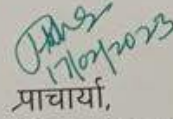 17/02/2023
प्राचार्या,